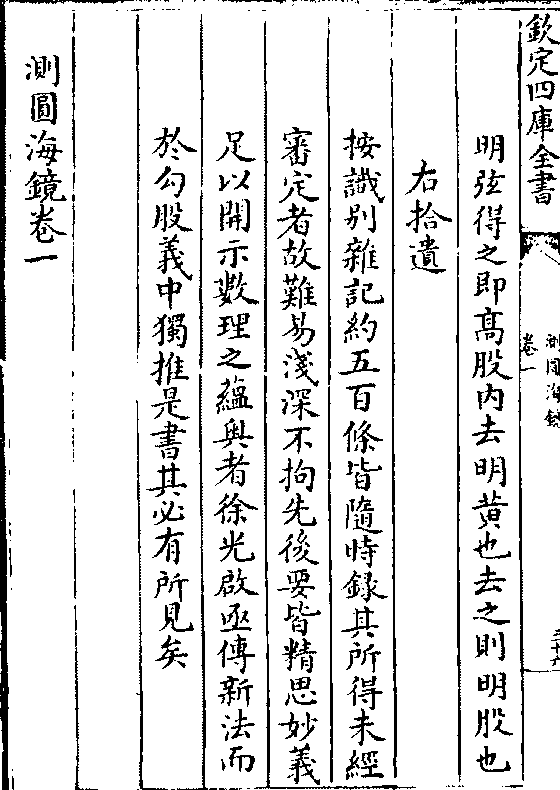 欽定四庫全書
測圓海鏡
卷一
明弦得之即髙股内去明黄也去之則明股也
右拾遺
按識别雜記約五百條皆隨時録其所得未經
審定者故難易淺深不拘先後要皆精思妙義
足以開示數理之藴奥者徐光啟亟傳新法而
於勾股義中獨推是書其必有所見矣
測圓海鏡卷一